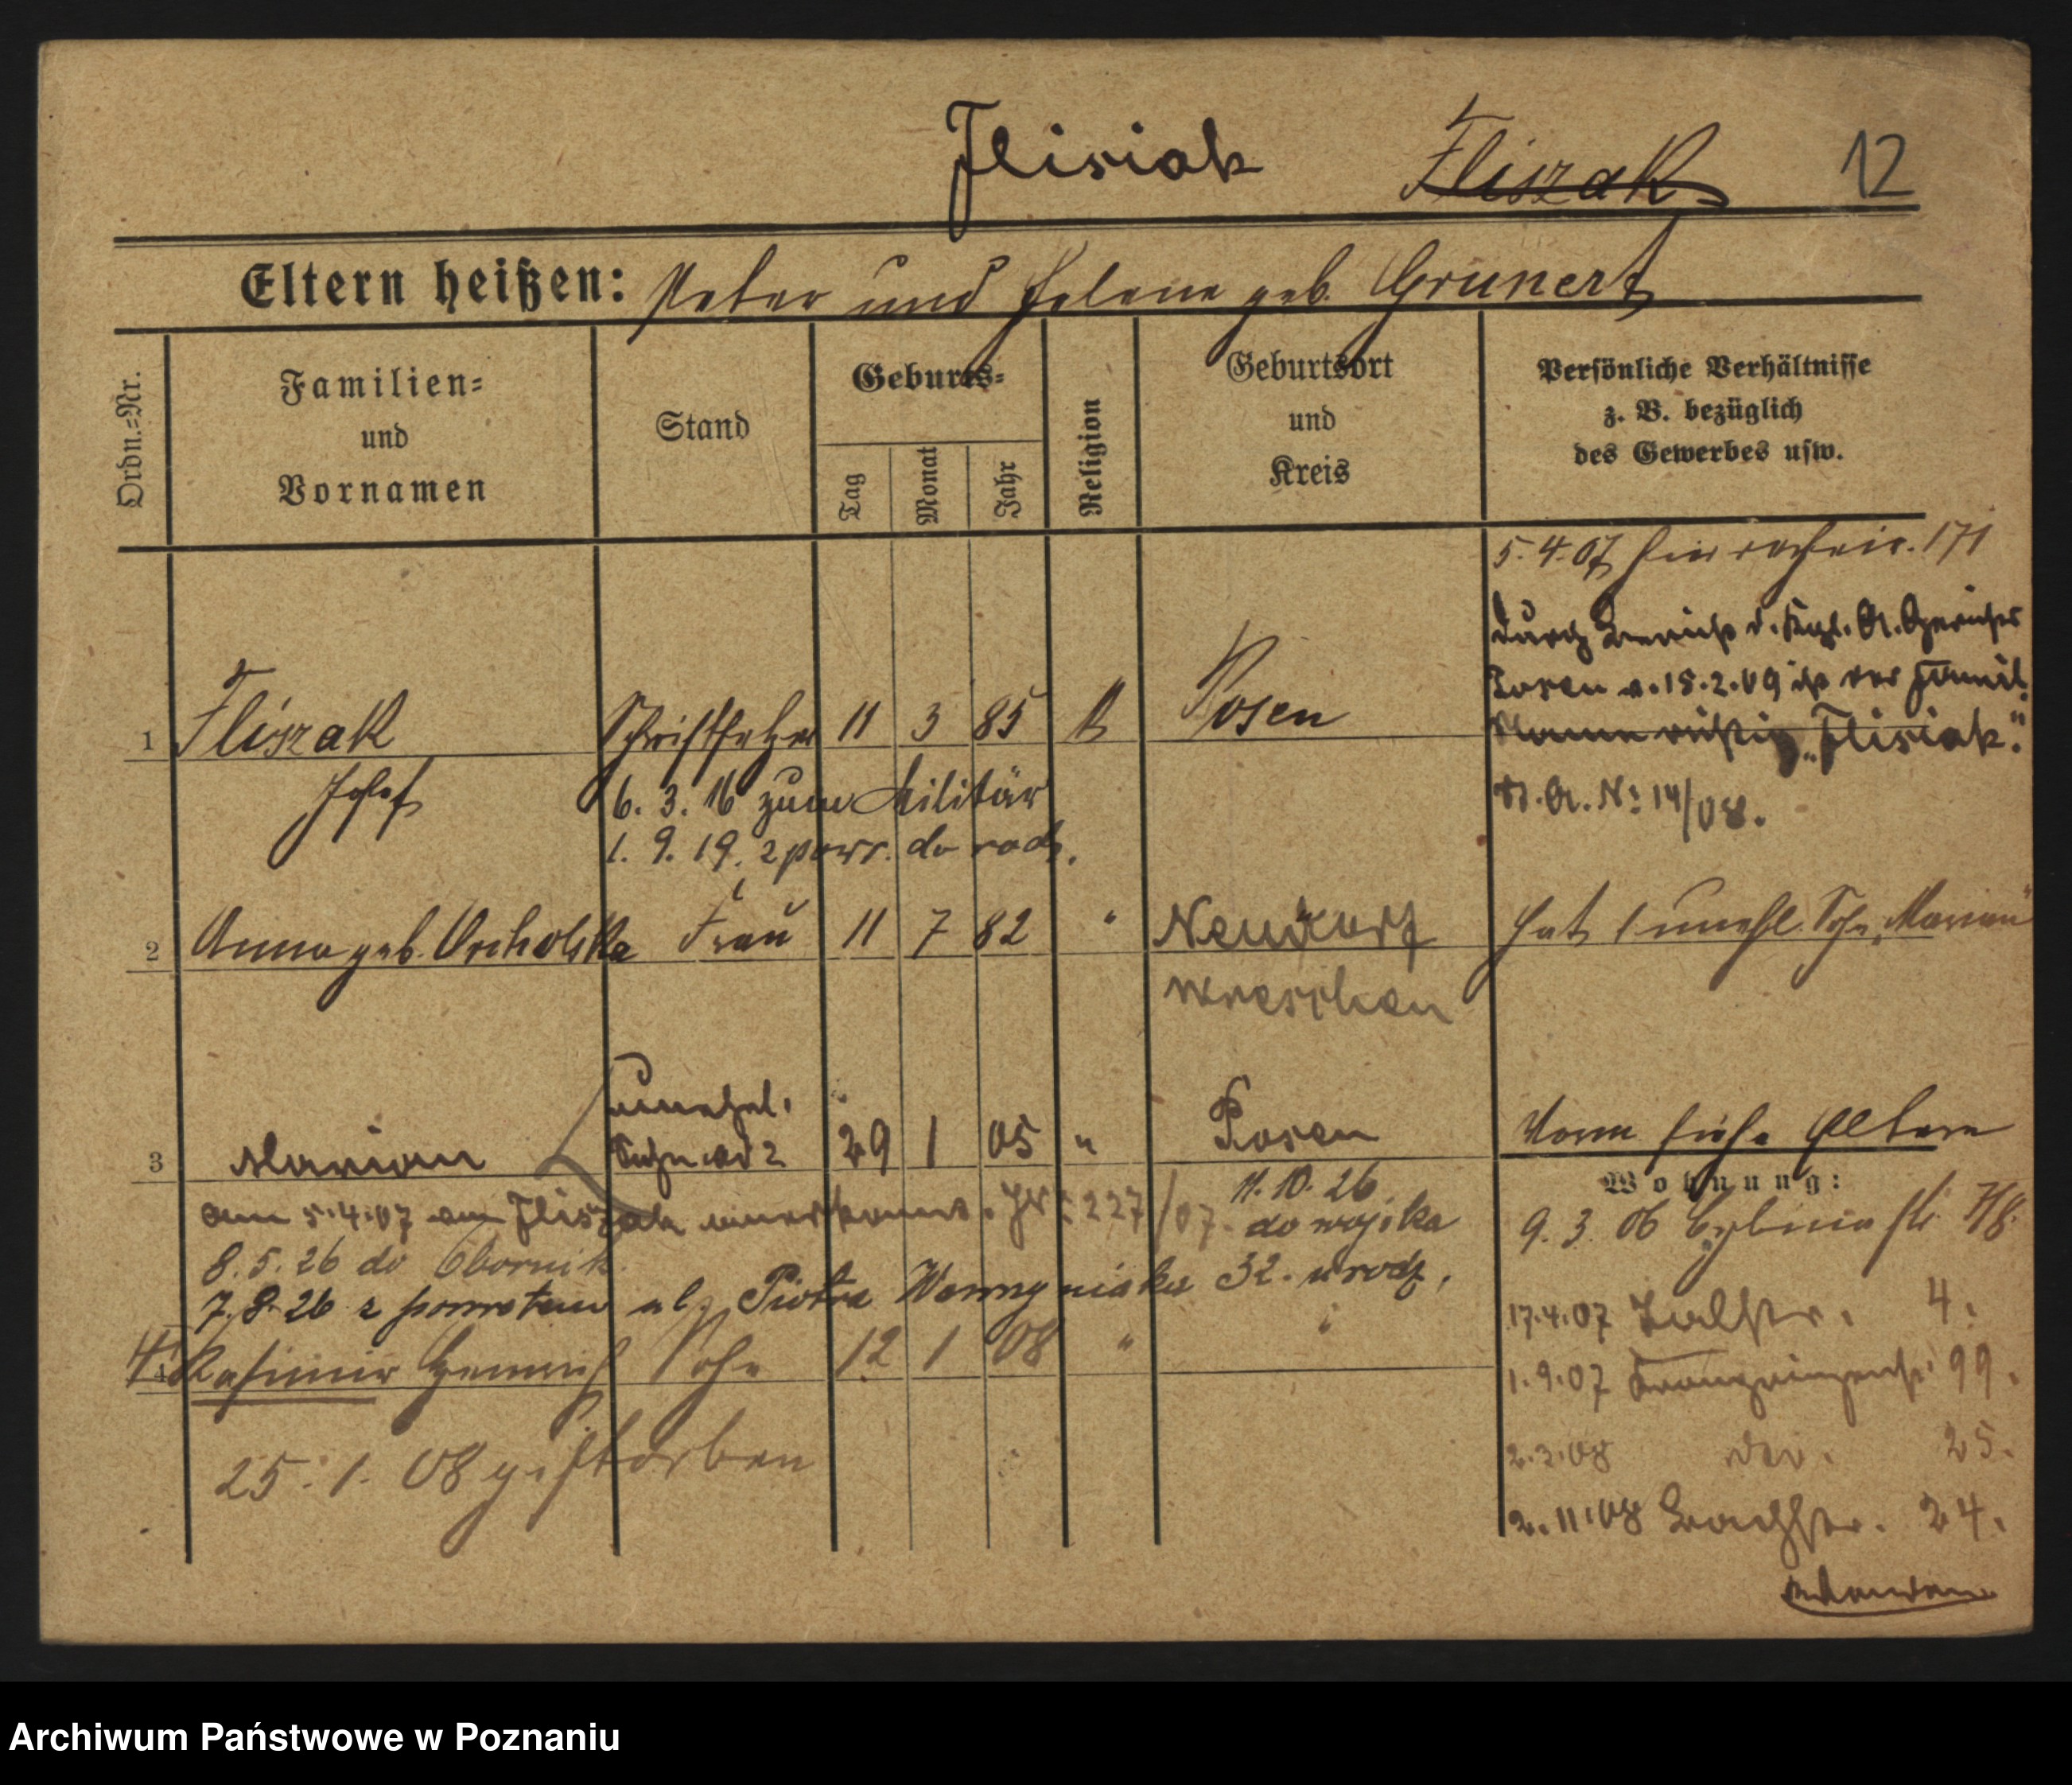 Flisiak Fliszak 12
Eltern heißen: Peter und Helene geb. Grunert
Ordn.-Nr.
Familien-
und
Vornamen
Stand
Geburts-
Tag
Monat
Jahr
Religion
Geburtsort
und
Kreis
Persönliche Verhältnisse
z. B. bezüglich
des Gewerbes usw.
5.4.07 171
durch d. Kgl. A. Gerichts
Posen v. 15.2.09 ist der Famil.
Name richtig „Flisiak“.
No 14/08.
1 Fliszak Schriftsetzer 11 3 85 k Posen
Josef
6. 3. 16 zum Militär
1. 9. 19. z powr. do rodz.
2 Anna geb. Orcholska Frau 11 7 82 " Neudorf hat 1 unehl. Sohn „Marian“
Wreschen
unehel.
3 Marian Sohn ad 2 29 1 05 " Posen Vorm siehe Eltern
am 5.4.07 als Fliszak anerkannt. 227/07.
11. 10. 26
do wojska
8. 5. 26 do Obornik
7. 8. 26 z powrotem ul. Piotra Wawrzyniaka 32. u rodz.
4. Kasimir Heinrich Sohn 12 1 08 " "
25. 1. 08 gestorben
Wohnung:
9. 3. 06 78.
17.4.07 4.
1.9.07 Kronprinzenstr. 99.
2.3.08 25.
2.11.08 Bachstr. 24.
Archiwum Państwowe w Poznaniu